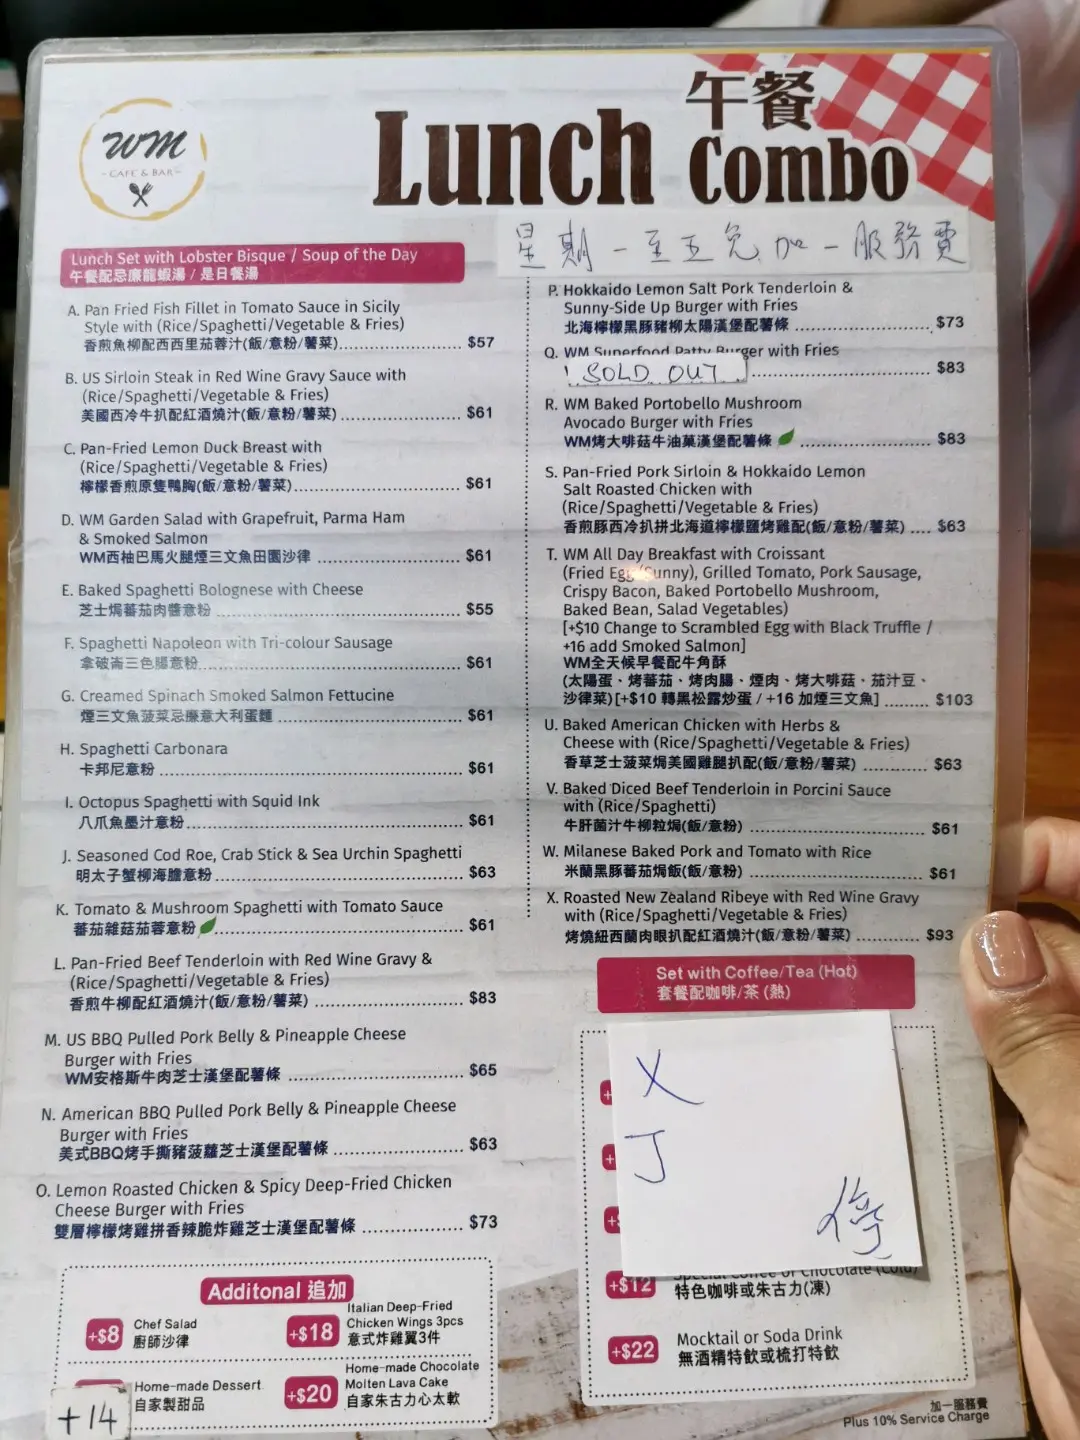 WM
- CAFE & BAR -
午餐
Lunch Combo
星期一至五免加一服務費
Lunch Set with Lobster Bisque / Soup of the Day
午餐配忌廉龍蝦湯 / 是日餐湯
A. Pan Fried Fish Fillet in Tomato Sauce in Sicily
Style with (Rice/Spaghetti/Vegetable & Fries)
香煎魚柳配西西里茄蓉汁(飯/意粉/薯菜) $57
B. US Sirloin Steak in Red Wine Gravy Sauce with
(Rice/Spaghetti/Vegetable & Fries)
美國西冷牛扒配紅酒燒汁(飯/意粉/薯菜) $61
C. Pan-Fried Lemon Duck Breast with
(Rice/Spaghetti/Vegetable & Fries)
檸檬香煎原隻鴨胸(飯/意粉/薯菜) $61
D. WM Garden Salad with Grapefruit, Parma Ham
& Smoked Salmon
WM西柚巴馬火腿煙三文魚田園沙律 $61
E. Baked Spaghetti Bolognese with Cheese
芝士焗蕃茄肉醬意粉 $55
F. Spaghetti Napoleon with Tri-colour Sausage
拿破崙三色腸意粉 $61
G. Creamed Spinach Smoked Salmon Fettucine
煙三文魚菠菜忌廉意大利蛋麵 $61
H. Spaghetti Carbonara
卡邦尼意粉 $61
I. Octopus Spaghetti with Squid Ink
八爪魚墨汁意粉 $61
J. Seasoned Cod Roe, Crab Stick & Sea Urchin Spaghetti
明太子蟹柳海膽意粉 $63
K. Tomato & Mushroom Spaghetti with Tomato Sauce
蕃茄雜菇茄蓉意粉 $61
L. Pan-Fried Beef Tenderloin with Red Wine Gravy &
(Rice/Spaghetti/Vegetable & Fries)
香煎牛柳配紅酒燒汁(飯/意粉/薯菜) $83
M. US BBQ Pulled Pork Belly & Pineapple Cheese
Burger with Fries
WM安格斯牛肉芝士漢堡配薯條 $65
N. American BBQ Pulled Pork Belly & Pineapple Cheese
Burger with Fries
美式BBQ烤手撕豬菠蘿芝士漢堡配薯條 $63
O. Lemon Roasted Chicken & Spicy Deep-Fried Chicken
Cheese Burger with Fries
雙層檸檬烤雞拼香辣脆炸雞芝士漢堡配薯條 $73
P. Hokkaido Lemon Salt Pork Tenderloin &
Sunny-Side Up Burger with Fries
北海檸檬黑豚豬柳太陽漢堡配薯條 $73
Q. WM Superfood Patty Burger with Fries
SOLD OUT $83
R. WM Baked Portobello Mushroom
Avocado Burger with Fries
WM烤大啡菇牛油菓漢堡配薯條 $83
S. Pan-Fried Pork Sirloin & Hokkaido Lemon
Salt Roasted Chicken with
(Rice/Spaghetti/Vegetable & Fries)
香煎豚西冷扒拼北海道檸檬鹽烤雞配(飯/意粉/薯菜) $63
T. WM All Day Breakfast with Croissant
(Fried Egg (Sunny), Grilled Tomato, Pork Sausage,
Crispy Bacon, Baked Portobello Mushroom,
Baked Bean, Salad Vegetables)
[+$10 Change to Scrambled Egg with Black Truffle /
+16 add Smoked Salmon]
WM全天候早餐配牛角酥
(太陽蛋、烤蕃茄、烤肉腸、煙肉、烤大啡菇、茄汁豆、
沙律菜)[+$10 轉黑松露炒蛋 / +16 加煙三文魚] $103
U. Baked American Chicken with Herbs &
Cheese with (Rice/Spaghetti/Vegetable & Fries)
香草芝士菠菜焗美國雞腿扒配(飯/意粉/薯菜) $63
V. Baked Diced Beef Tenderloin in Porcini Sauce
with (Rice/Spaghetti)
牛肝菌汁牛柳粒焗(飯/意粉) $61
W. Milanese Baked Pork and Tomato with Rice
米蘭黑豚蕃茄焗飯(飯/意粉) $61
X. Roasted New Zealand Ribeye with Red Wine Gravy
with (Rice/Spaghetti/Vegetable & Fries)
烤燒紐西蘭肉眼扒配紅酒燒汁(飯/意粉/薯菜) $93
Set with Coffee/Tea (Hot)
套餐配咖啡/茶 (熱)
X
J
停
+$12 Special Coffee or Chocolate (Cold)
特色咖啡或朱古力(凍)
+$22 Mocktail or Soda Drink
無酒精特飲或梳打特飲
Additonal 追加
+$8 Chef Salad
廚師沙律
+$18 Italian Deep-Fried
Chicken Wings 3pcs
意式炸雞翼3件
+14 Home-made Dessert
自家製甜品
+$20 Home-made Chocolate
Molten Lava Cake
自家朱古力心太軟
加一服務費
Plus 10% Service Charge